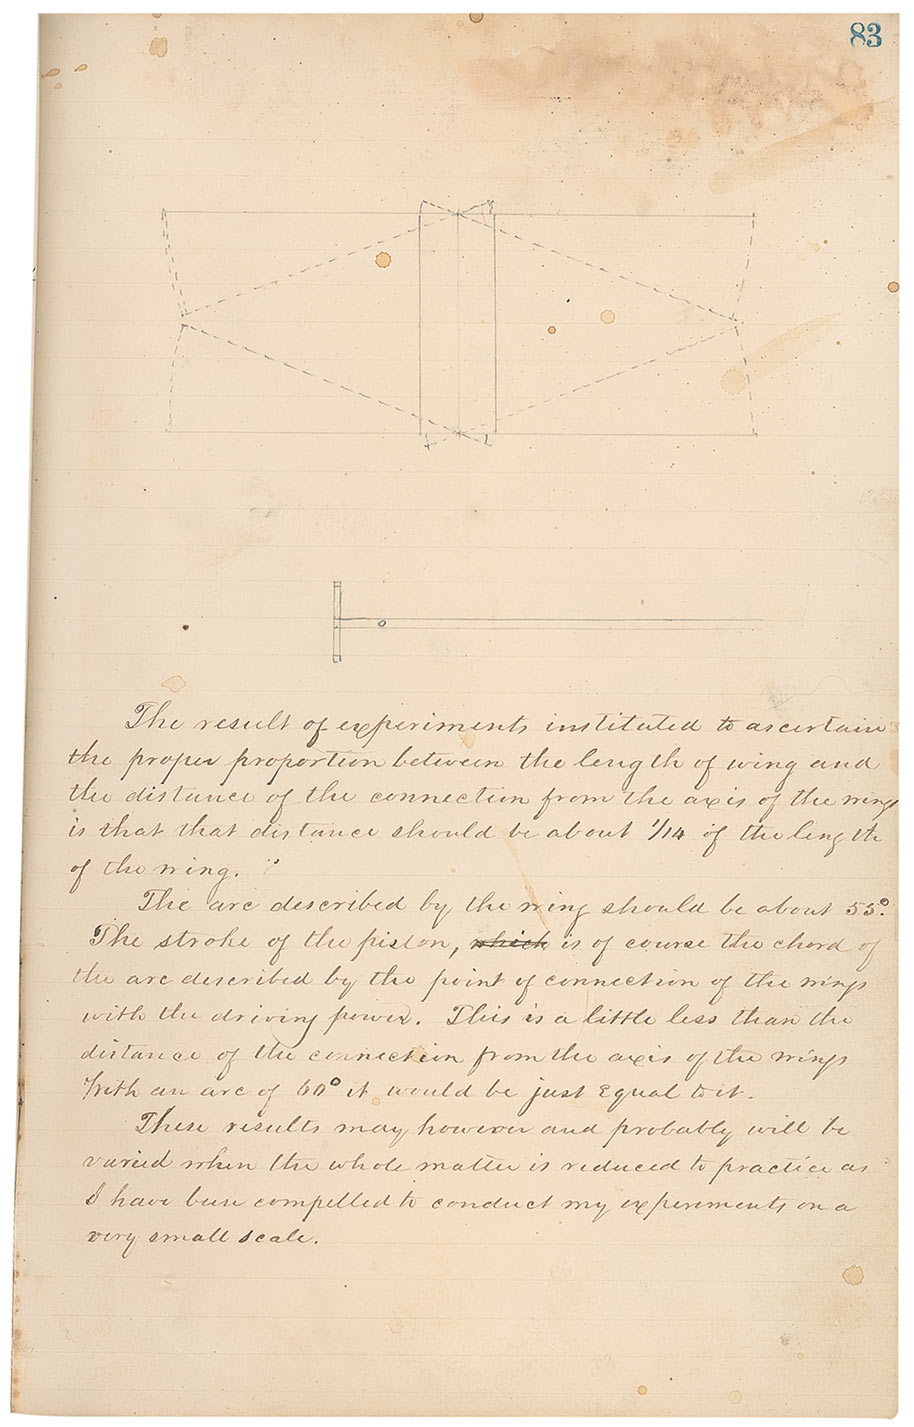 83
The result of experiments instituted to ascertain
the proper proportion between the length of wing and
the distance of the connection from the axis of the wings
is that that distance should be about 1/14 of the length
of the wing. ?
The arc described by the wing should be about 55°.
The stroke of the piston, which is of course the chord of
the arc described by the point of connection of the wings
with the driving power. This is a little less than the
distance of the connection from the axis of the wings
With an arc of 60° it would be just Equal to it.
These results may however and probably will be
varied when the whole matter is reduced to practice as
I have been compelled to conduct my experiments on a
very small scale.